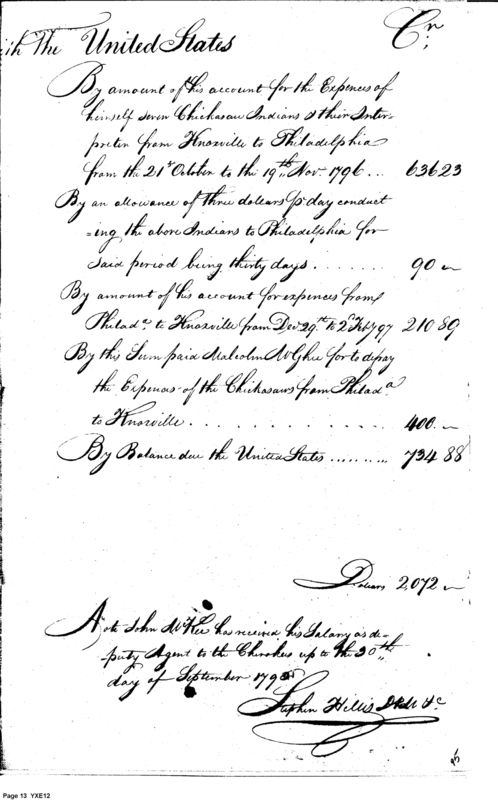 ith The United States Cr,
By amount of his account for the Expences of
himself seven Chickasaw Indians & their Inter-
preter from Knoxville to Philadelphia
from the 21st October to the 19th, Nov. 1796 ... 636 23
By an allowance of three dollars pr day conduct
=ing the above Indians to Philadelphia for
said period being thirty days . . . . . . . 90 "
By amount of his account for expences from
Philada. to Knoxville from Decr 29th to 2d Feby 97 210 89
By this Sum paid Malcolm McGhee for to defray
the Expences of the Chickasaws from Philada.
to Knoxville . . . . . . . . . . . 400. "
By Balance due the United States .......... 734 88
Dollars 2,072 "
Note John McKee has received his Salary as de-
puty Agent to the Cherokees up to the 30th
day of September 179
Stephen Hillis
Page 13 YXE12